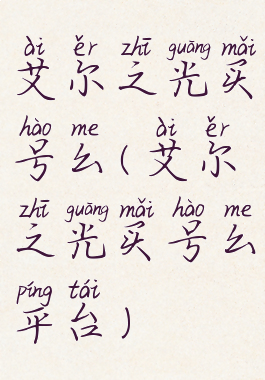 ài ěr zhī guāng mǎi
艾尔之光买
hào me ài ěr
号么(艾尔
zhī guāng mǎi hào me
之光买号么
píng tái
平台)